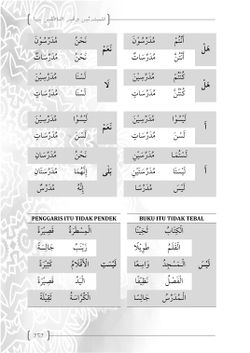 أَنْتُمْ مُدَرِّسُوْنَ نَحْنُ مُدَرِّسُوْنَ
هَلْ نَعَمْ
أَنْتُنَّ مُدَرِّسَاتٌ نَحْنُ مُدَرِّسَاتٌ
كُنْتُمْ مُدَرِّسِيْنَ لَسْنَا مُدَرِّسِيْنَ
هَلْ لَا
كُنْتُنَّ مُدَرِّسَاتٍ لَسْنَا مُدَرِّسَاتٍ
لَيْسُوْا مُدَرِّسِيْنَ لَيْسُوْا مُدَرِّسِيْنَ
أَ نَعَمْ
لَسْنَ مُدَرِّسَاتٍ لَسْنَ مُدَرِّسَاتٍ
لَسْتُمَا مُدَرِّسَيْنِ نَحْنُ مُدَرِّسَانِ
أَ لَيْسَتَا مُدَرِّسَتَيْنِ بَلَى إِنَّهُمَا
لَيْسَ مُدَرِّسًا إِنَّهُ مُدَرِّسٌ
PENGGARIS ITU TIDAK PENDEK BUKU ITU TIDAK TEBAL
الْكِتَابُ ثَخِيْنًا الْمِسْطَرَةُ قَصِيْرَةً
الْقَلَمُ طَوِيْلًا زَيْنَبُ جَالِسَةً
لَيْسَ الْمَسْجِدُ وَاسِعًا لَيْسَتِ الْأَقْلَامُ كَثِيْرَةً
الْفَصْلُ نَظِيْفًا الْيَدُ قَصِيْرَةً
الْمُدَرِّسُ جَالِسًا الْكُرَّاسَةُ ثَقِيْلَةً